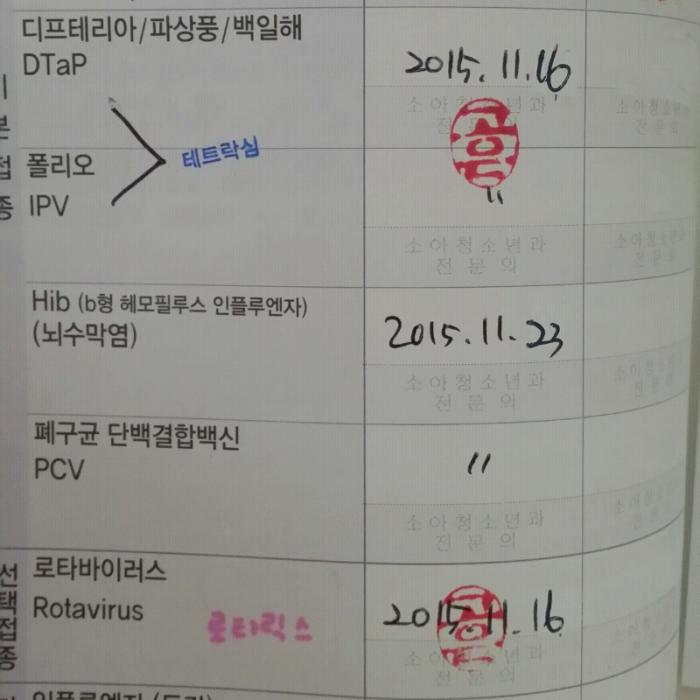 디프테리아/파상풍/백일해
DTaP
2015.11.16
소아청소년과
전문의
소아청소년과
전문의
테트락심
폴리오
IPV
"
소아청소년과
전문의
소아청소년과
전문의
Hib (b형 헤모필루스 인플루엔자)
(뇌수막염)
2015.11.23
소아청소년과
전문의
소아청소년과
전문의
폐구균 단백결합백신
PCV
"
소아청소년과
전문의
소아청소년과
전문의
로타바이러스
Rotavirus
로타릭스
2015.11.16
소아청소년과
전문의
선택접종